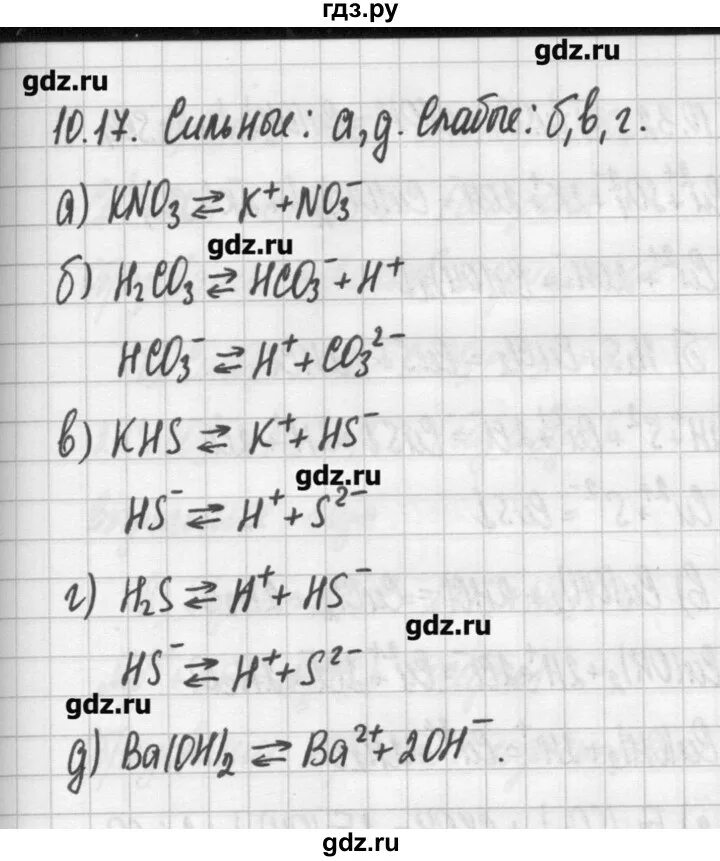 гдз.ру
gdz.ru
gdz.ru
10.17. Сильные: а, д. Слабые: б, в, г.
а) KNO₃ ⇄ K⁺ + NO₃⁻
gdz.ru
б) H₂CO₃ ⇄ HCO₃⁻ + H⁺
HCO₃⁻ ⇄ H⁺ + CO₃²⁻
в) KHS ⇄ K⁺ + HS⁻
gdz.ru
HS⁻ ⇄ H⁺ + S²⁻
г) H₂S ⇄ H⁺ + HS⁻
gdz.ru
HS⁻ ⇄ H⁺ + S²⁻
gdz.ru
д) Ba(OH)₂ ⇄ Ba²⁺ + 2OH⁻.
gdz.ru